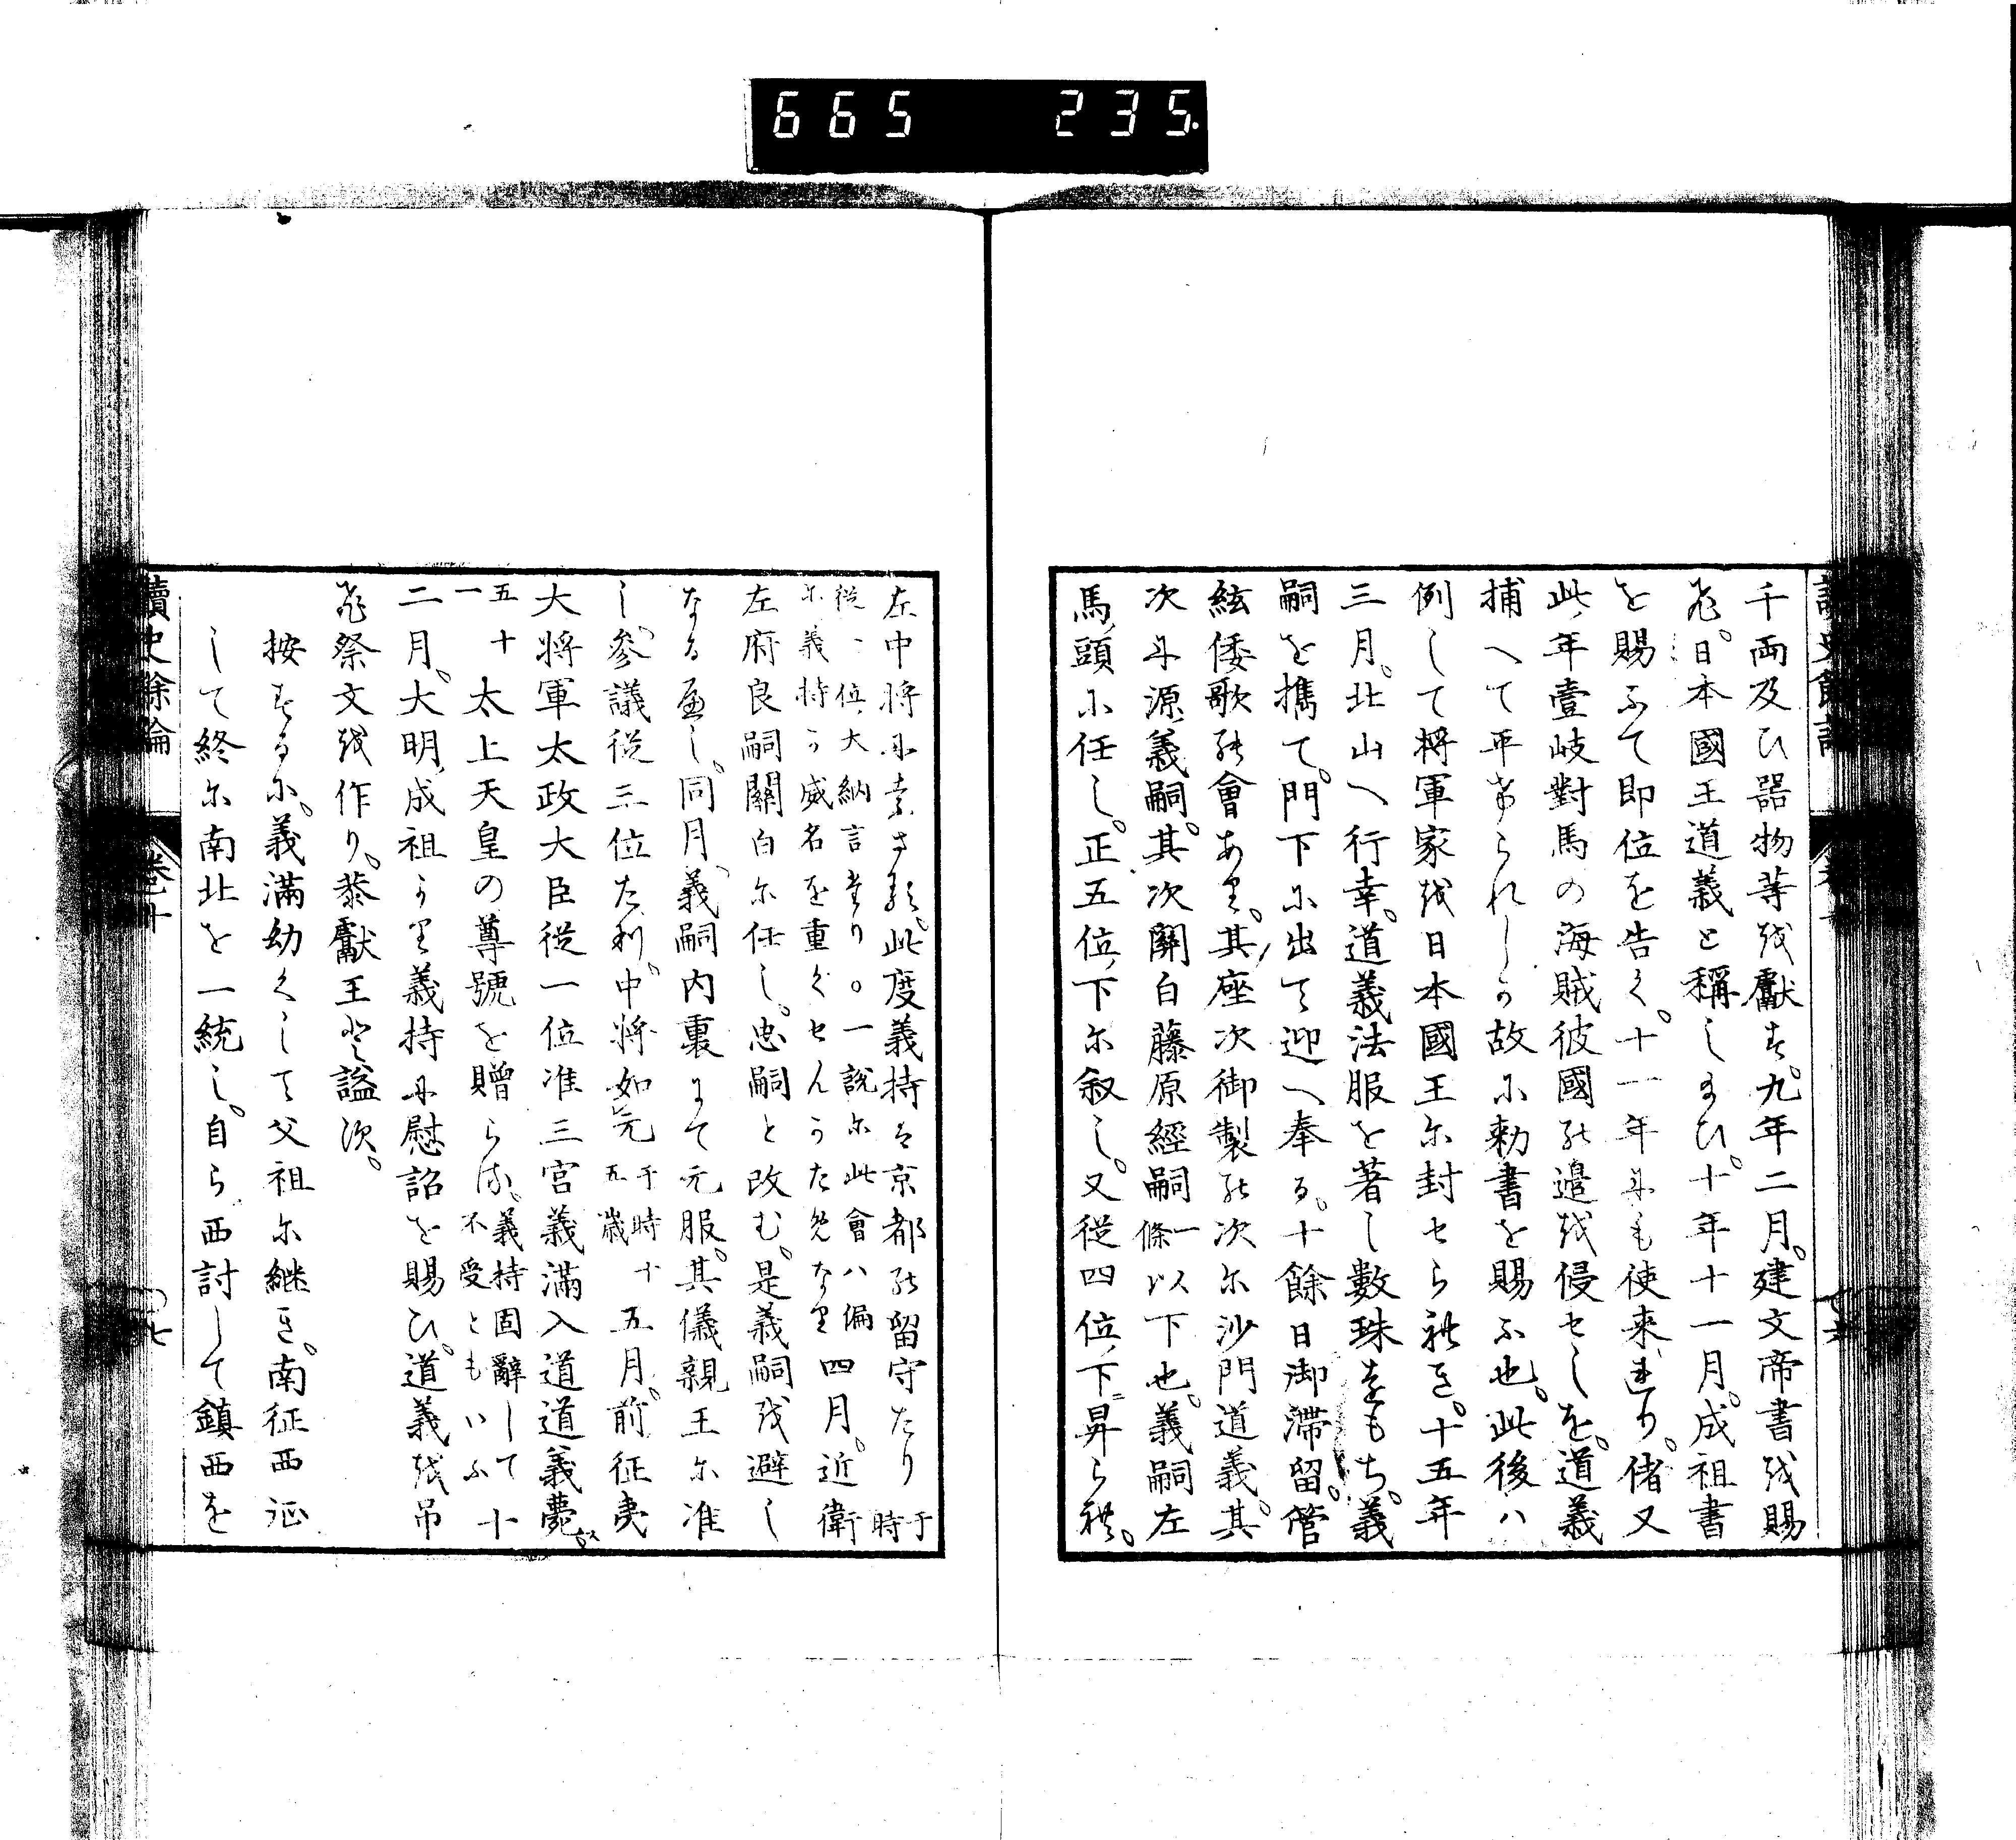 665 235.
千両及ひ器物等を獻す。九年二月。建文帝書を賜
ふ。日本國王道義と稱しまひ。十年十一月。成祖書
を賜ふて即位を告く。十一年にも使来れり。偖又
此年壹岐對馬の海賊彼國の邊を侵せしを。道義
捕へて平けられしか故に勅書を賜ふ也。此後ハ
例して将軍家を日本國王に封せられき。十五年
三月。北山へ行幸。道義法服を著し數珠をもち。義
嗣を携て。門下に出て迎へ奉る。十餘日御滞留。管
絃倭歌の會あり。其座次御製の次に沙門道義。其
次に源義嗣。其次關白藤原經嗣一條以下也。義嗣左
馬頭に任し。正五位下に叙し。又従四位下ニ昇られ。
左中将にすゝむ。此度義持は京都の留守たり于時
従一位大納言たり。一説に此會ハ偏
に義持か威名を重くせんかためなり四月。近衛
左府良嗣關白に任し。忠嗣と改む。是義嗣を避し
なるへし。同月。義嗣内裏にて元服。其儀親王に准
し。参議従三位たり。中将如元于時十五歳五月。前征夷
大将軍太政大臣従一位准三宮義滿入道道義薨す
五十一太上天皇の尊號を贈らる。義持固辭して不受ともいふ十
二月。大明成祖より義持に慰詔を賜ひ。道義を吊
ふ祭文を作り。恭獻王と謚次。
按するに。義滿幼くして父祖に継き。南征西征
して終に南北を一統し。自ら西討して鎮西を
讀史餘論 巻十